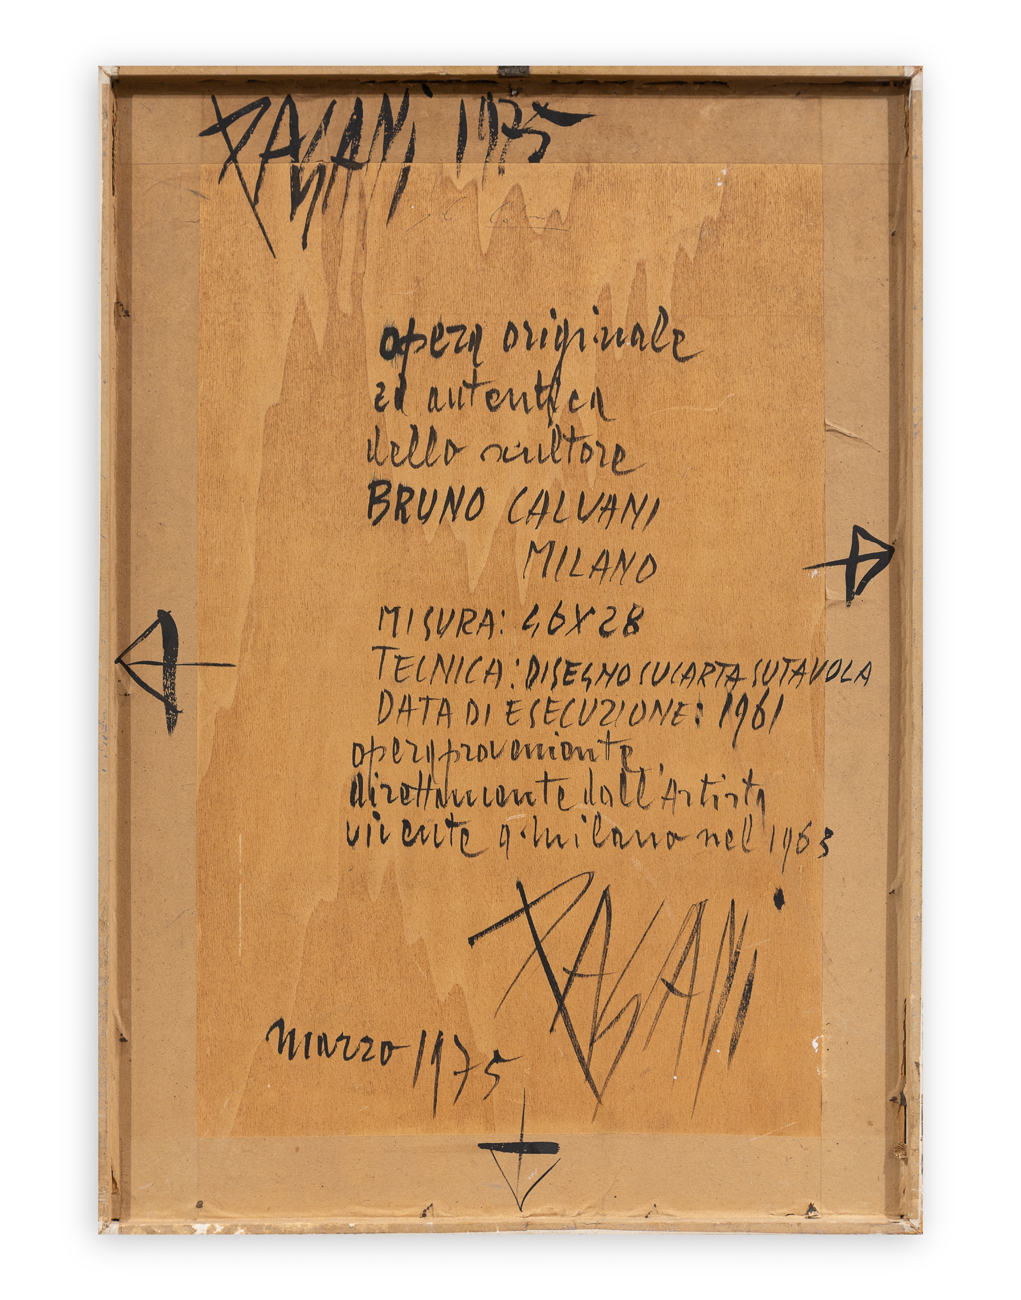 PAGANI 1975
opera originale
ed autentica
dello scultore
BRUNO CALVANI
MILANO
MISURA: 46X28
TECNICA: DISEGNO SU CARTA SU TAVOLA
DATA DI ESECUZIONE: 1961
opera proveniente
direttamente dall'Artista
vivente a milano nel 1963
PAGANI
marzo 1975